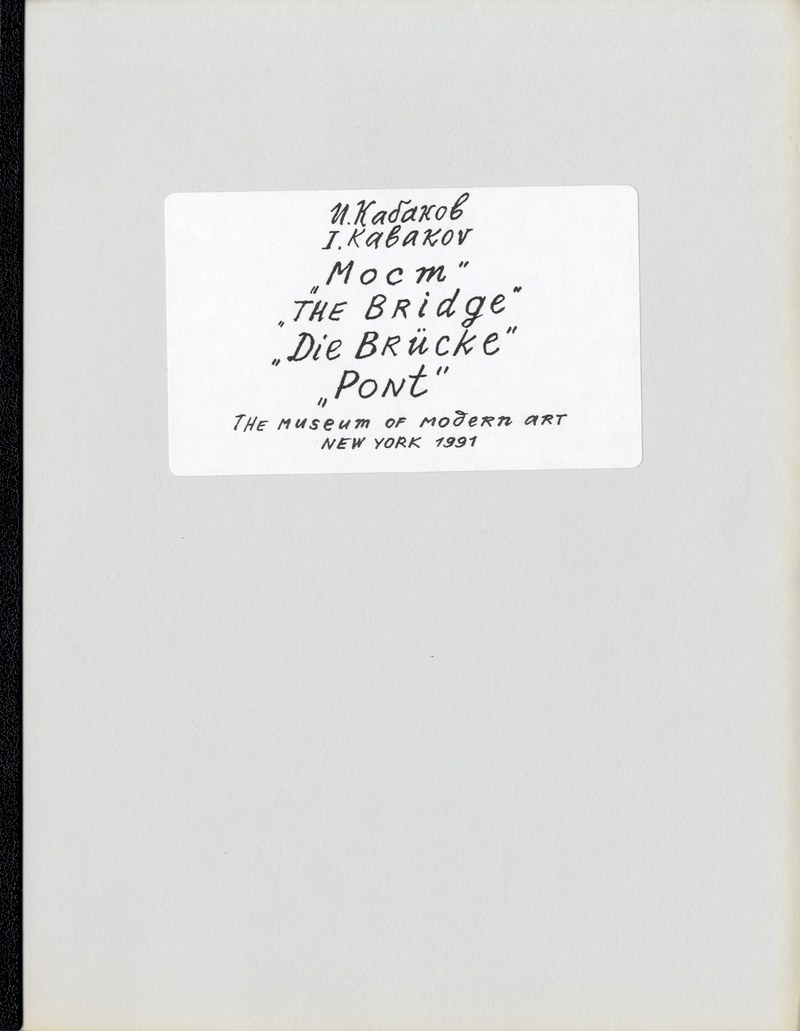 И. Кабаков
I. Kabakov
„Мост"
„THE BRidge"
„Die BRücke"
„PONt"
THE Museum OF MOdERN ART
NEW YORK 1991